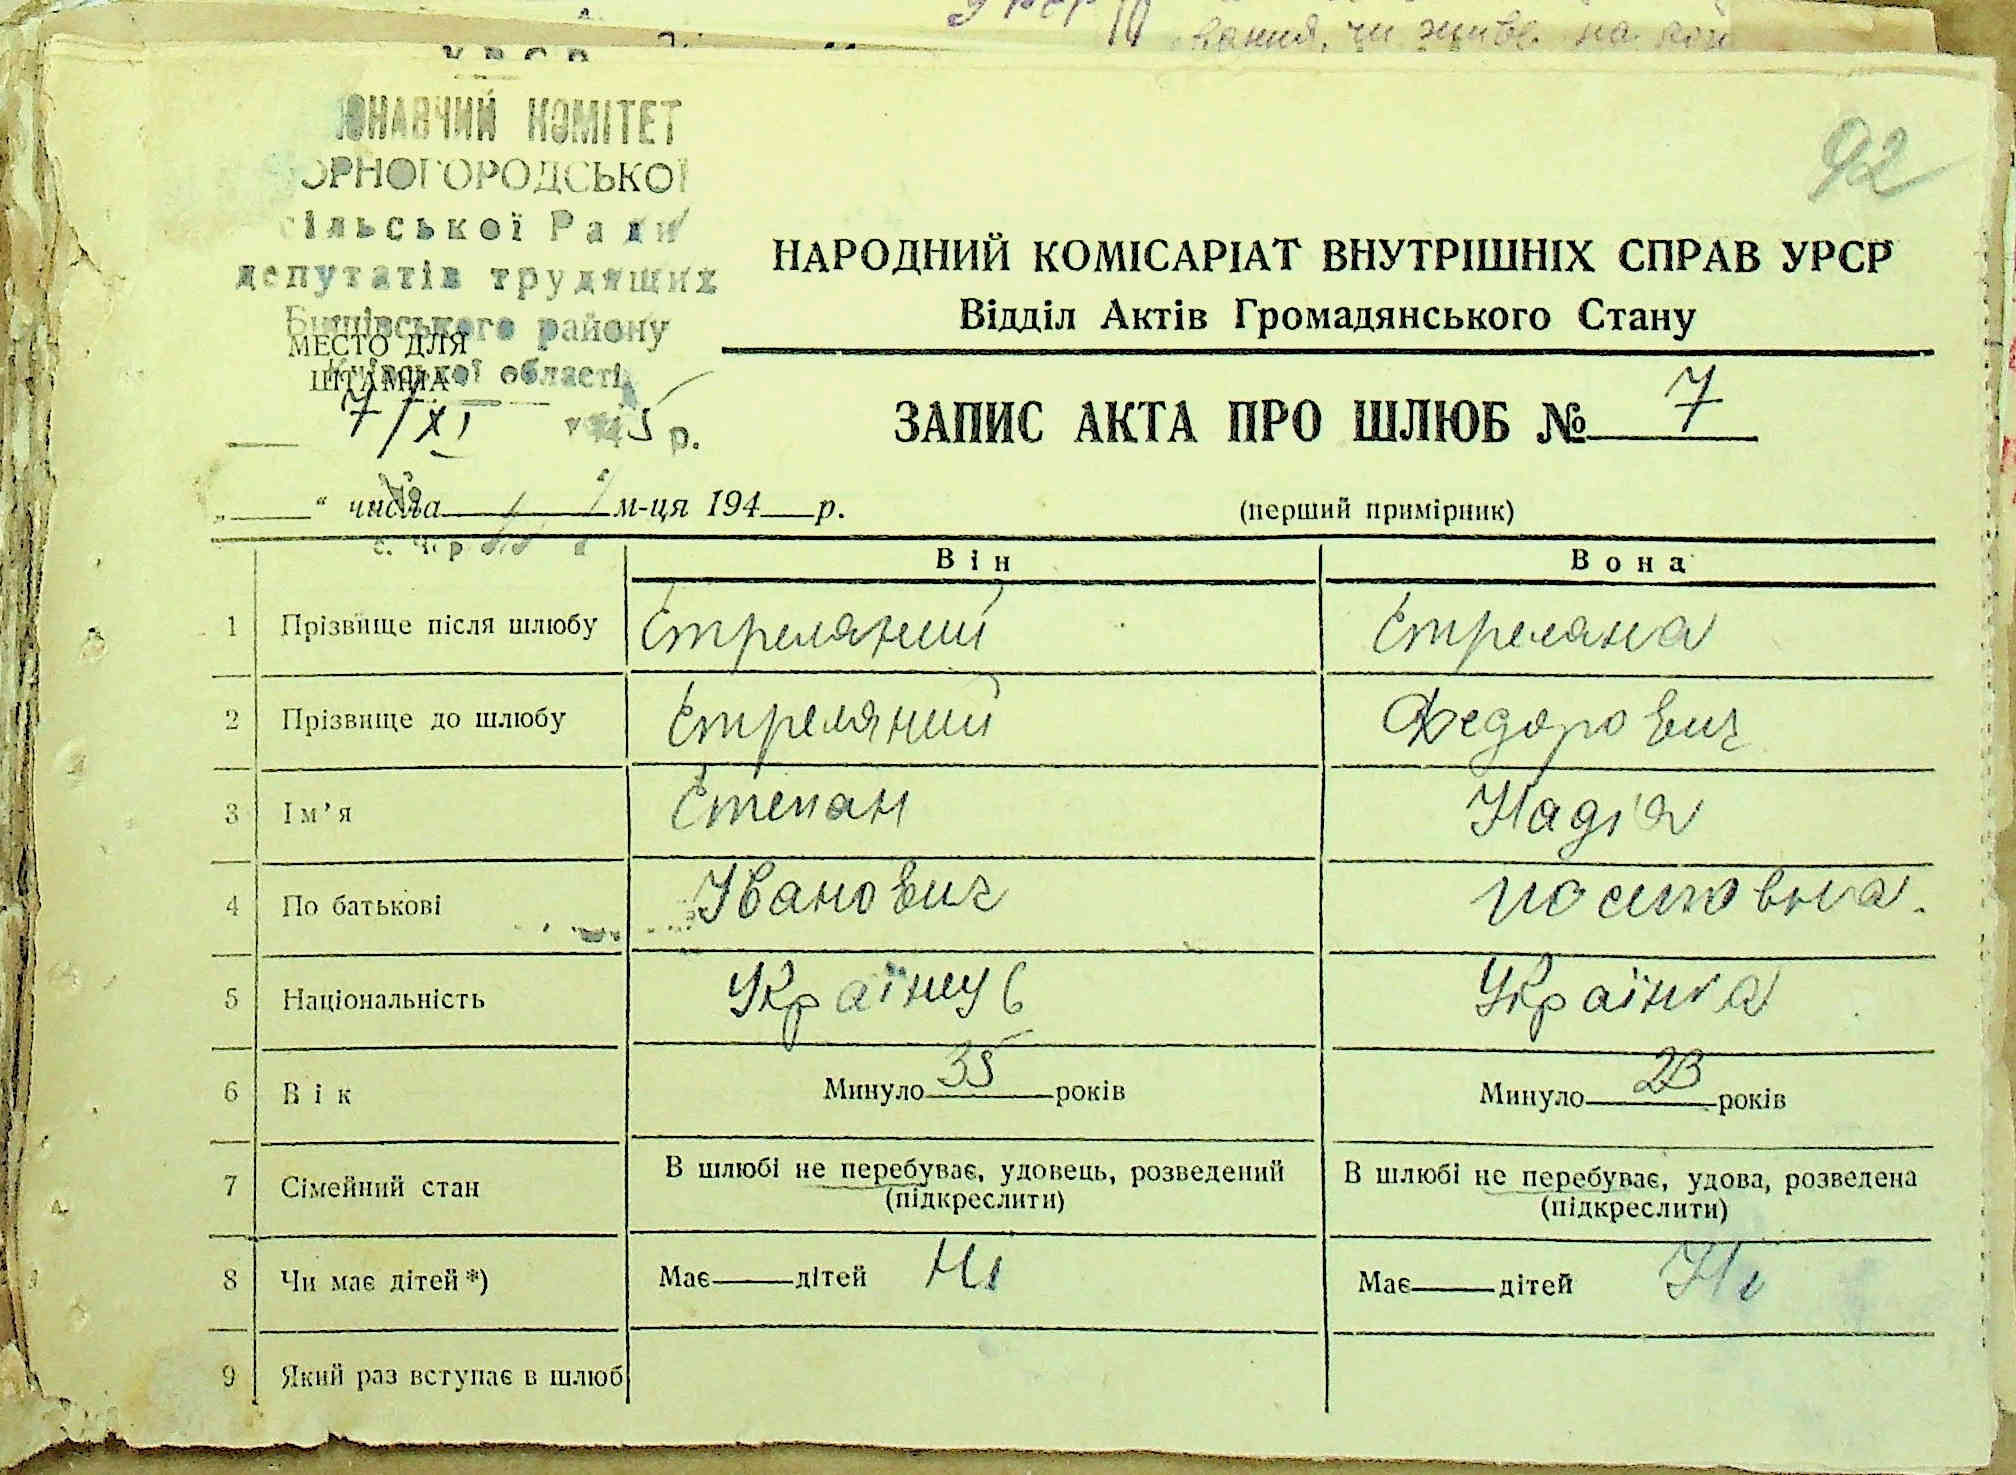 вання, чи живе на
УРСР
92
ЮНАВЧИЙ КОМІТЕТ
ОРНОГОРОДСЬКОЇ
сільської Ради
депутатів трудящих
Бишівського району
Київської області
МЕСТО ДЛЯ
ШТАМПА
7/XI 1945 р.
НАРОДНИЙ КОМІСАРІАТ ВНУТРІШНІХ СПРАВ УРСР
Відділ Актів Громадянського Стану
ЗАПИС АКТА ПРО ШЛЮБ № 7
„ “ числа м-ця 194 р.
(перший примірник)
Він Вона
1 Прізвище після шлюбу Стреляний Стреляна
2 Прізвище до шлюбу Стреляний Федорович
3 Ім’я Степан Надія
4 По батькові Іванович Иосиповна
5 Національність Українець Українка
6 Вік Минуло 35 років Минуло 23 років
7 Сімейний стан В шлюбі не перебуває, удовець, розведений (підкреслити) В шлюбі не перебуває, удова, розведена (підкреслити)
8 Чи має дітей *) Має дітей Ні Має дітей Ні
9 Який раз вступає в шлюб